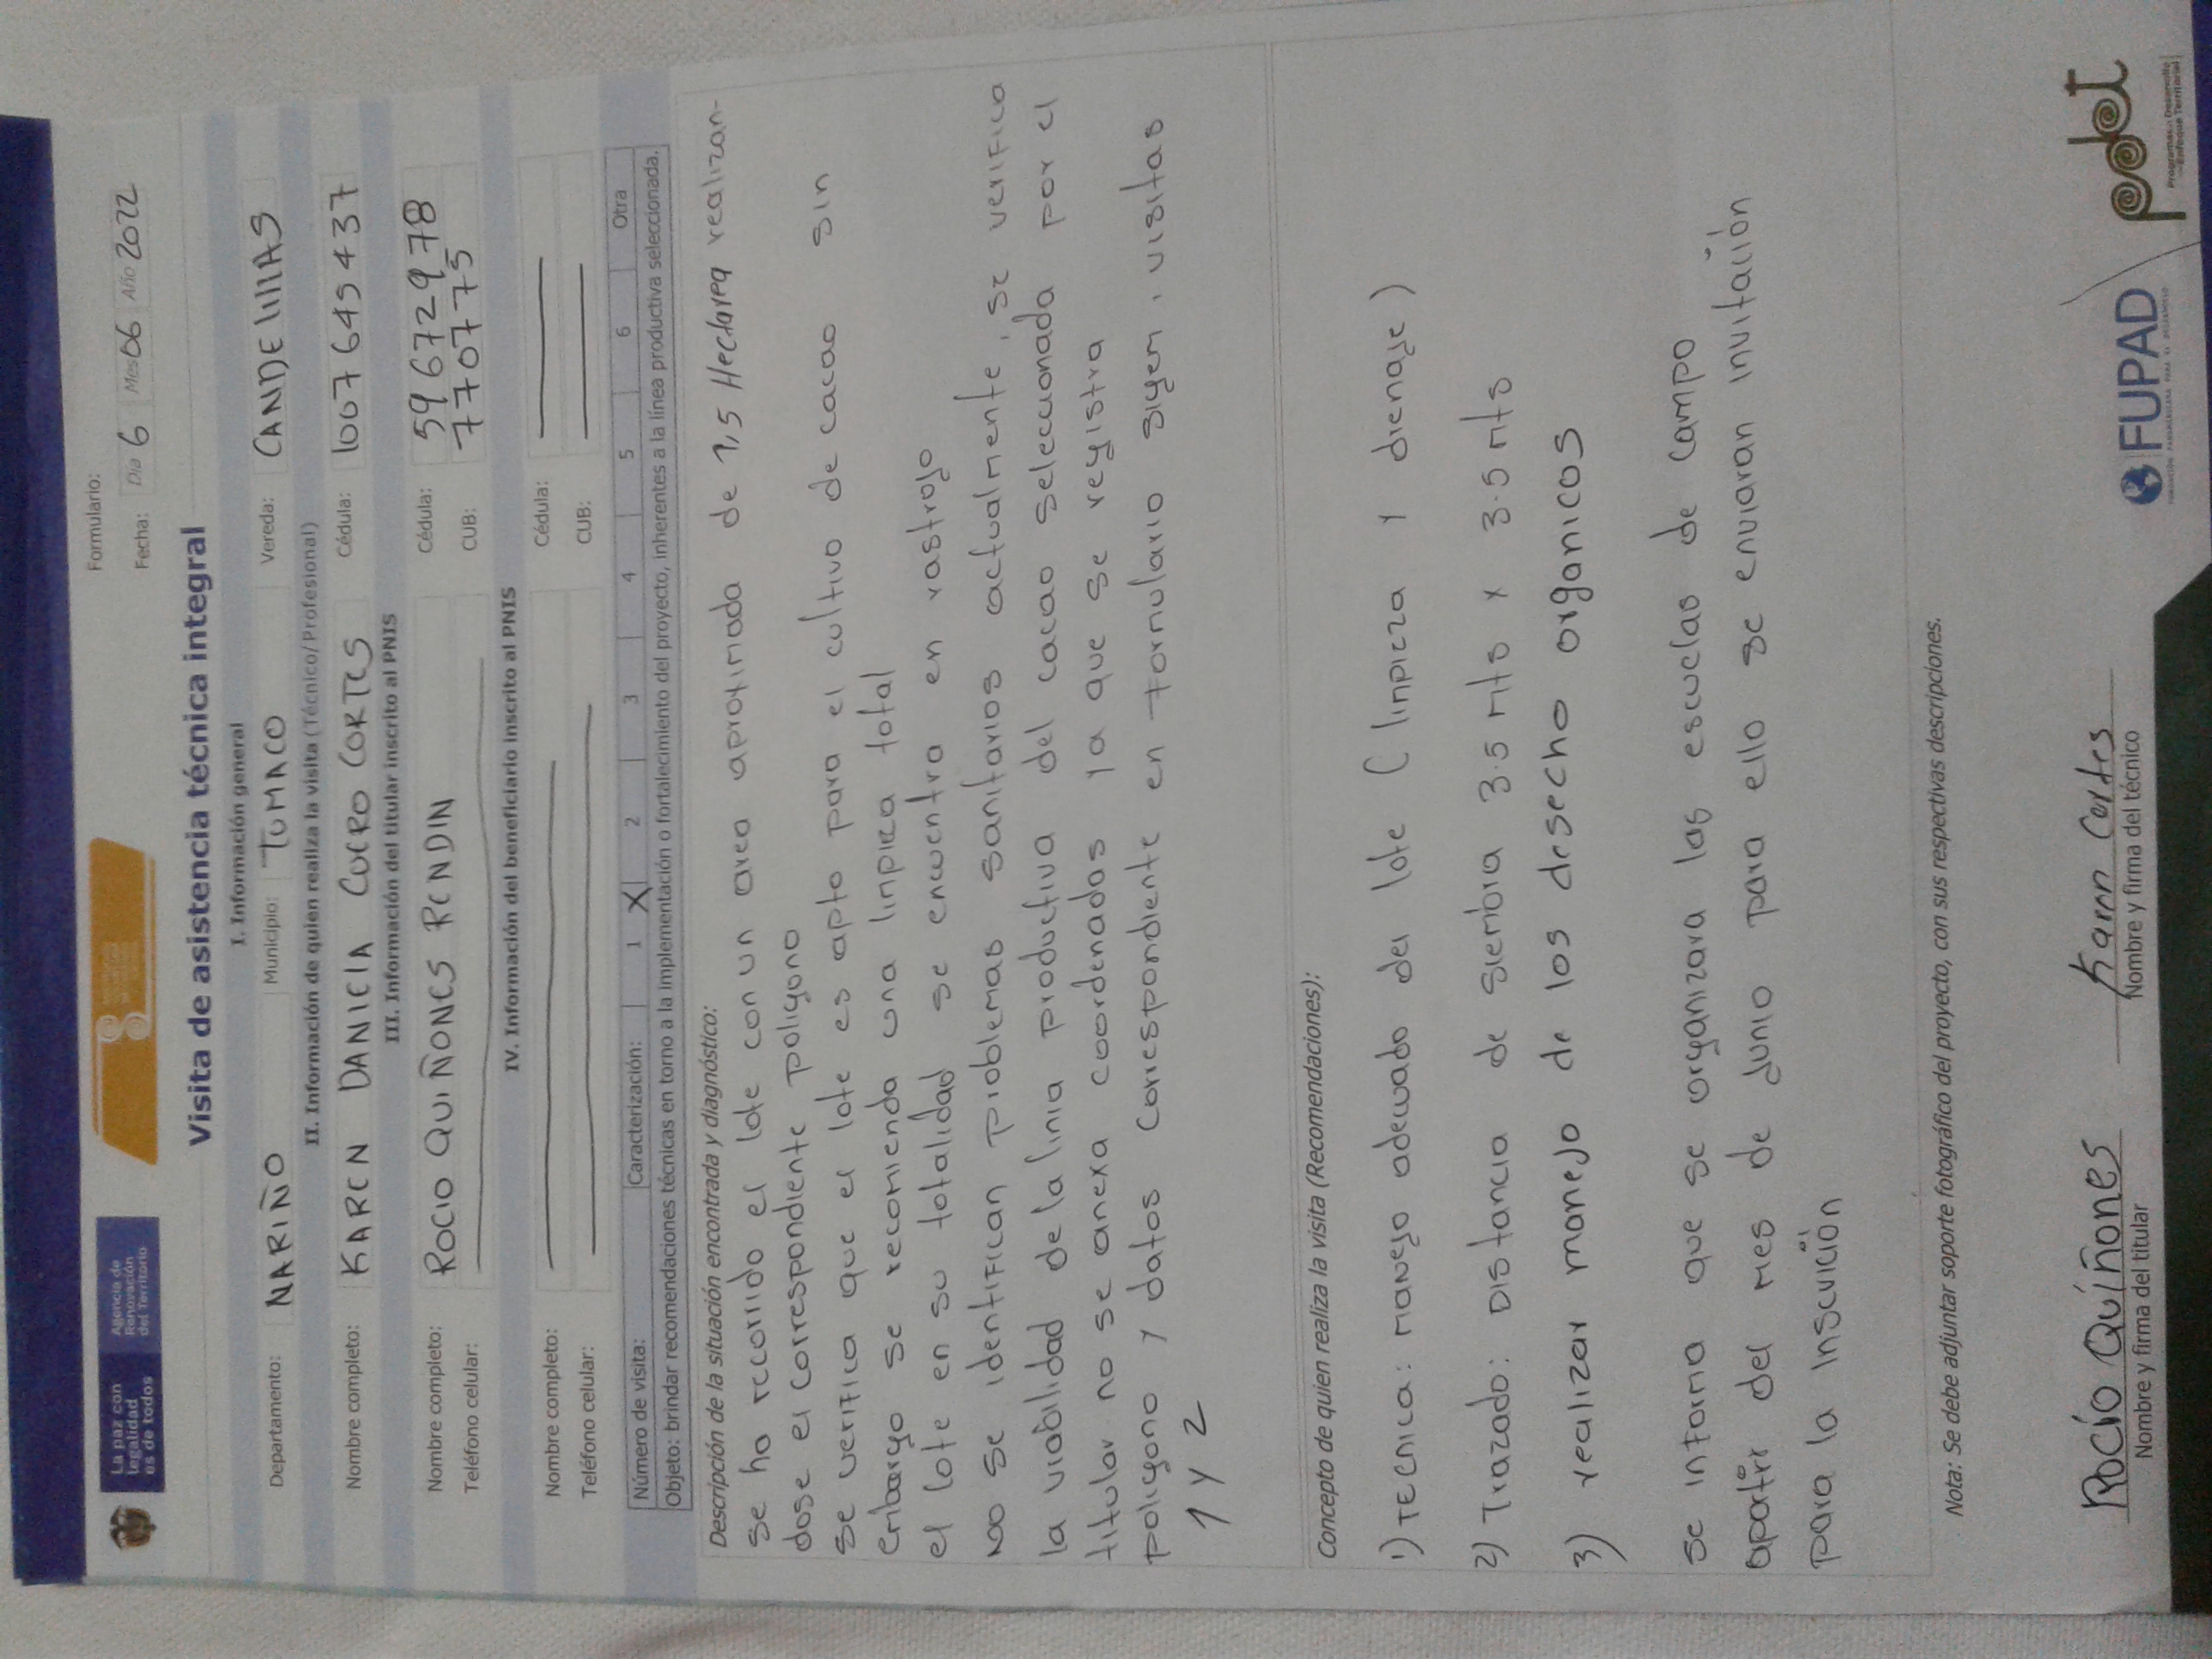 La paz con
legalidad
es de todos
Agencia de
Renovación
del Territorio
Formulario:
Fecha: Día 6 Mes 06 Año 2022
Visita de asistencia técnica integral
I. Información general
Departamento: NARIÑO Municipio: TUMACO Vereda: CANDElillAS
II. Información de quien realiza la visita (Técnico/Profesional)
Nombre completo: KAREN DANIElA CUERO CORTES Cédula: 1007645437
III. Información del titular inscrito al PNIS
Nombre completo: ROCIO QUIÑONES RENDIN Cédula: 59672978
Teléfono celular: CUB: 770775
IV. Información del beneficiario inscrito al PNIS
Nombre completo: Cédula:
Teléfono celular: CUB:
Número de visita: Caracterización: 1 X 2 3 4 5 6 Otra
Objeto: brindar recomendaciones técnicas en torno a la implementación o fortalecimiento del proyecto, inherentes a la línea productiva seleccionada.
Descripción de la situación encontrada y diagnóstico:
se ha recorrido el lote con un area aproximada de 1,5 Hectarea realizan-
dose el correspondiente poligono
se verifico que el lote es apto para el cultivo de cacao sin
embargo se recomienda una limpieza total
el lote en su totalidad se encuentra en rastrojo
no se identifican problemas sanitarios actualmente, se verifica
la viabilidad de la linia productiva del cacao seleccionada por el
titular no se anexa coordenadas ya que se registra
poligono y datos correspondiente en formulario sigem, visitas
1 y 2
Concepto de quien realiza la visita (Recomendaciones):
1) TECNICA: Manejo adecuado del lote (limpieza y drenaje)
2) Trazado: Distancia de siembra 3.5 mts x 3.5 mts
3) realizar manejo de los desecho organicos
se informa que se organizara las escuelas de campo
apartir del mes de Junio para ello se enviaran invitación
para la inscrición
Nota: Se debe adjuntar soporte fotográfico del proyecto, con sus respectivas descripciones.
Rocío Quíñones
Nombre y firma del titular
Karen Cortes
Nombre y firma del técnico
FUPAD
FUNDACIÓN PANAMERICANA PARA EL DESARROLLO
pdet
Programas de Desarrollo
con Enfoque Territorial